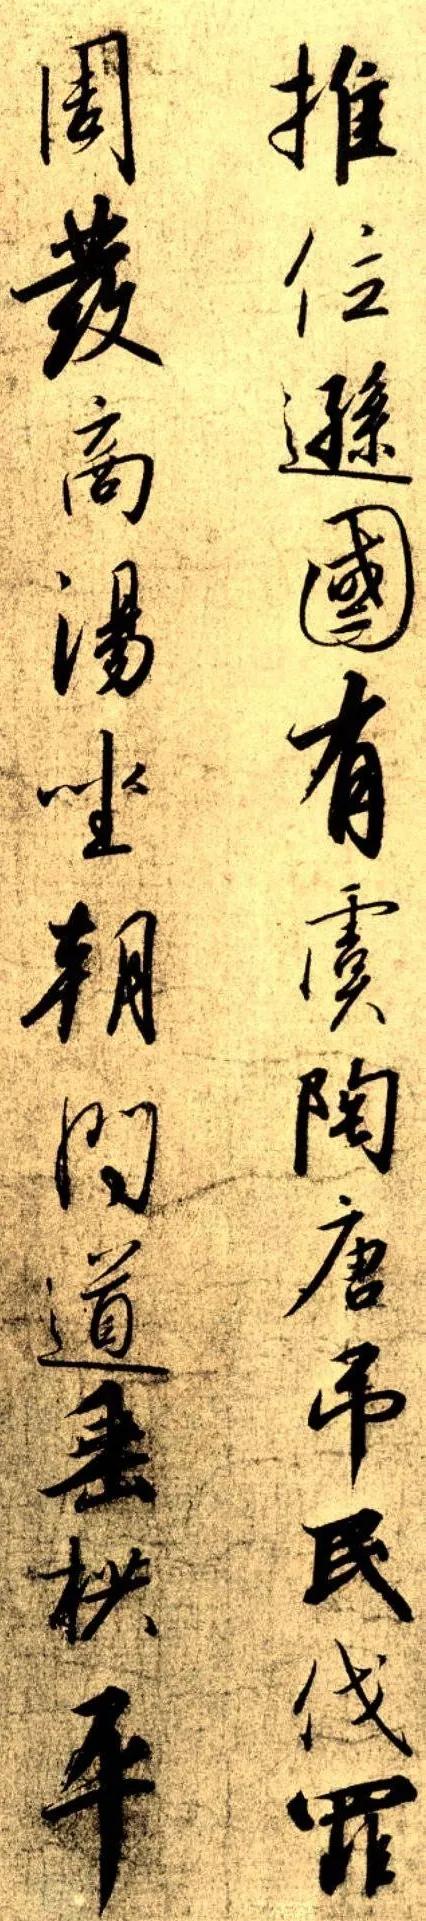 推位遜國有虞陶唐吊民伐罪
周發商湯坐朝問道垂拱平